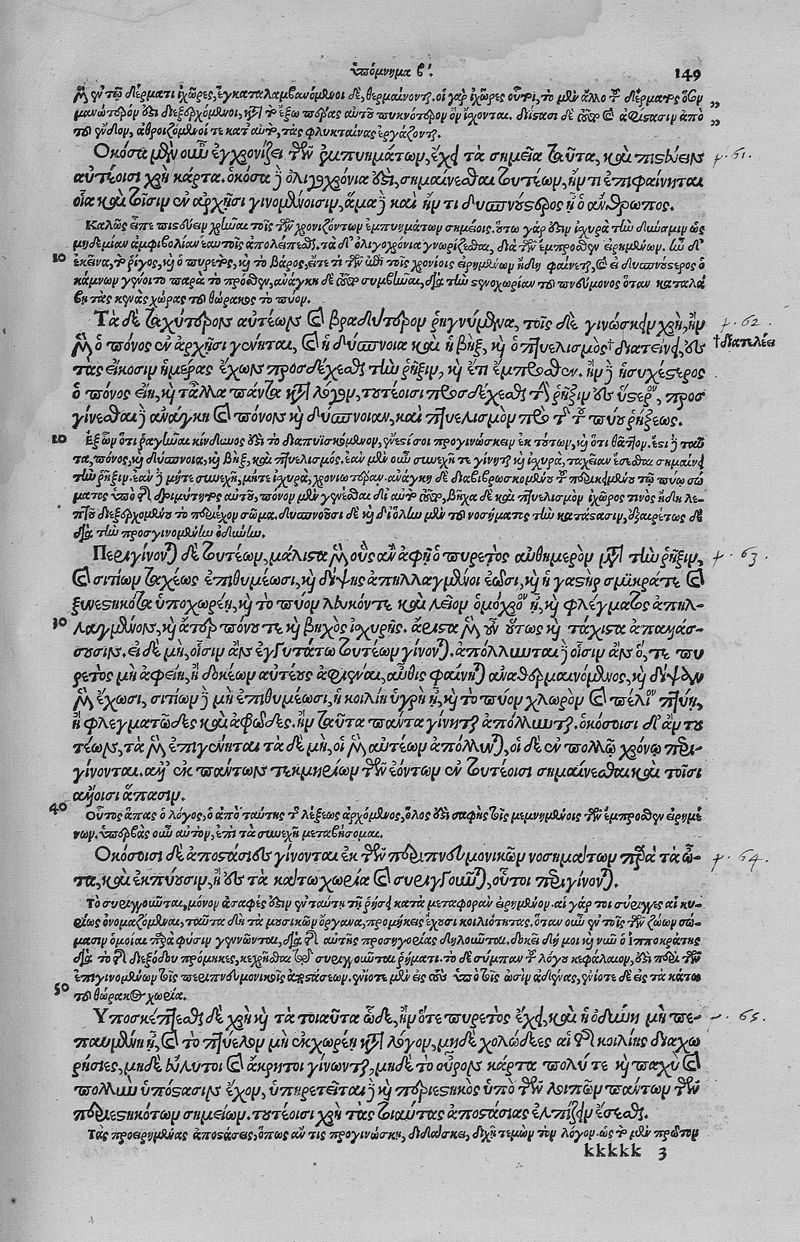 ὑπόμνημα β΄. 149
μὲν τῷ δέρματι ἰχῶρες, ἐγκαταλαμβανόμενοι δὲ, θερμαίνοντ(αι). οἱ γὰρ ἰχῶρες οὗτοι, τὸ μὲν ἄλλο τοῦ δέρματος ὅσον ,,
μανώτερόν ἐστι διεξερχόμενοι, κατὰ τὸ ἔξω πέρας αὐτοῦ πυκνότερον ὂν ἴσχονται. διίστασι δὲ τοῦτο καὶ ἀφίστασιν ἀπὸ ,,
τοῦ ἔνδον, ἀθροιζόμενοί τε κατ' αὐτὸ, τὰς φλυκταίνας ἐργάζοντ(αι).
Ὁκόσα μὲν οὖν ἐγχρονίζει τῶν ἐμπυημάτων, ἔχει τὰ σημεῖα ταῦτα, καὶ πιστεύειν 61.
αὐτέοισι χρὴ κάρτα. ὁκόσα δὲ ὀλιγοχρόνιά ἐστι, σημαίνεσθαι τουτέων, ἤν τι ἐπιφαίνηται
οἷα καὶ τοῖσιν ἐν ἀρχῇσι γινομένοισιν, ἅμα δὲ καὶ ἤν τι δυσπνούστερος ᾖ ὁ ἄνθρωπος.
Καλῶς εἶπε πιστεύειν χρῆναι τοῖς τῶν χρονιζόντων ἐμπυημάτων σημείοις. οὕτω γάρ ἐστιν ἰσχυρὰ τὴν δύναμιν ὡς
μηδεμίαν ἀμφιβολίαν ἑαυτοῖς ἀπολείπεσθαι. τὰ δ' ὀλιγοχρόνια γνωρίζεσθαι, διὰ τῶν ἔμπροσθεν εἰρημένων. ἦν δ'
10 ἐκεῖνα, τὸ ῥῖγος, καὶ ὁ πυρετὸς, καὶ τὸ βάρος, εἴτε τι τῶν ἐπὶ τοῖς χρονίοις εἰρημένων ἤδη φαίνετ(αι), καὶ εἰ δυσπνούστερος ὁ
κάμνων γένοιτο παρὰ τὸ πρόσθεν. ἀνάγκη δὲ τοῦτο συμβῆναι, διὰ τὴν στενοχωρίαν τοῦ πνεύμονος ὅταν καταλά
βῃ τὰς κενὰς χώρας τοῦ θώρακος τὸ πύον.
Τὰ δὲ ταχύτερον αὐτέων καὶ βραδύτερον ῥηγνύμενα, τοῖς δὲ γινώσκειν χρὴ, ἢν 62.
μὲν ὁ πόνος ἐν ἀρχῇσι γένηται, καὶ ἡ δύσπνοια καὶ ἡ βὴξ, καὶ ὁ πτυελισμὸς† διατείνῃ, ἐς †διατελέει
τὰς εἴκοσιν ἡμέρας ἔχων προσδέχεσθαι τὴν ῥῆξιν, καὶ ἔτι ἔμπροσθεν. ἢν δὲ ἡσυχέστερος
ὁ πόνος εἴη, καὶ τἄλλα πάντα κατὰ λόγον, τουτέοισι προσδέχεσθαι τὴν ῥῆξιν ἐς ὕστερον, προσ
γίνεσθαι δὲ ἀνάγκη καὶ πόνον καὶ δύσπνοιαν, καὶ πτυελισμὸν πρὸ τῆς τοῦ πύου ῥήξεως.
20 Ἐξ ὧν ὅτι ῥαγῆναι κίνδυνός ἐστι τὸ διαπυϊσκόμενον, ἔνεστί σοι προγινώσκειν ἐκ τούτων, καὶ ὅτι θᾶττον. ἔστι δὲ ταῦ
τα, πόνος, καὶ δύσπνοια, καὶ βὴξ, καὶ πτυελισμός. ἐὰν μὲν οὖν συνεχῆ τε γίνητ(αι) καὶ ἰσχυρὰ, ταχεῖαν ἔσεσθαι σημαίνει
τὴν ῥῆξιν. ἐὰν δὲ μήτε συνεχῆ, μήτε ἰσχυρὰ, χρονιωτέραν. ἀνάγκη δὲ διαβιβρωσκομένου τοῦ περικειμένου τῷ πύῳ σώ
ματος ὑπὸ τῆς δριμύτητος αὐτοῦ, πόνον μὲν γενέσθαι δι' αὐτὸ τοῦτο, βῆχα δὲ καὶ πτυελισμὸν ἰχῶρος τινὸς ἤδη λε-
πτοῦ διεξερχομένου τὸ περιέχον σῶμα. δυσπνοοῦσι δὲ καὶ δι' ὅλην μὲν τοῦ νοσήματος τὴν κατάστασιν, ἐξαιρέτως δὲ
διὰ τὴν προσγινομένην ὀδύνην.
Περιγίνοντ(αι) δὲ τουτέων, μάλιστα μὲν οὓς ἂν ἀφῇ ὁ πυρετὸς αὐθημερὸν μετὰ τὴν ῥῆξιν, 63.
καὶ σιτίων ταχέως ἐπιθυμέωσι, καὶ δίψης ἀπηλλαγμένοι ἔωσι, καὶ ἡ γαστὴρ σμικρά τε καὶ
ξυνεστηκότα ὑποχωρέῃ, καὶ τὸ πύον λευκόν τε καὶ λεῖον ὁμόχρουν ᾖ, καὶ φλέγματος ἀπηλ-
30 λαγμένον, καὶ ἄτερ πόνου τε καὶ βηχὸς ἰσχυρῆς. ἄριστα μὲν οὖν οὕτως καὶ τάχιστα ἀπαλλάσ-
σουσιν. εἰ δὲ μὴ, οἷσιν ἂν ἐγγυτάτω τουτέων γίνοντ(αι). ἀπόλλυνται δὲ οἷσιν ἂν ὅ, τε πυ
ρετὸς μὴ ἀφείη, ἢ δοκέων αὐτέους ἀφιέναι, αὖθις φαίνητ(αι) ἀναθερμαινόμενος, καὶ δίψην
μὲν ἔχωσι, σιτίων δὲ μὴ ἐπιθυμέωσι, ἡ κοιλίη ὑγρὴ ᾖ, καὶ τὸ πύον χλωρὸν καὶ πελιὸν πτύῃ,
ἢ φλεγματῶδες καὶ ἀφρῶδες. ἢν ταῦτα πάντα γίνητ(αι) ἀπόλλυντ(αι). ὁκόσοισι δ' ἂν του
τέων, τὰ μὲν ἐπιγένηται τὰ δὲ μὴ, οἱ μὲν αὐτέων ἀπόλλυντ(αι), οἱ δὲ ἐν πολλῷ χρόνῳ περι-
γίνονται. ἀλλ' ἐκ πάντων τεκμηρίων τῶν ἐόντων ἐν τουτέοισι σημαίνεσθαι καὶ τοῖσι
ἄλλοισι ἅπασιν.
40 Οὗτος ἅπας ὁ λόγος, ὁ ἀπὸ ταύτης τῆς λέξεως ἀρχόμενος, ὅλος ἐστὶ σαφὴς τοῖς μεμνημένοις τῶν ἔμπροσθεν εἰρημέ
νων. ὑπερβὰς οὖν αὐτὸν, ἐπὶ τὰ συνεχῆ μεταβήσομαι.
Ὁκόσοισι δὲ ἀποστάσιες γίνονται ἐκ τῶν περιπνευμονικῶν νοσημάτων παρὰ τὰ ὦ- 64.
τα, καὶ ἐκπύουσιν, ἢ ἐς τὰ κάτω χωρία καὶ συριγγοῦντ(αι), οὗτοι περιγίνοντ(αι).
Τὸ συριγγοῦνται, μόνον ἀσαφές ἐστιν ἐν ταύτῃ τῇ ῥήσει κατὰ μεταφορὰν εἰρημένον. αἱ γάρ τοι σύριγγες αἱ κυ-
ρίως ὀνομαζόμεναι, ταῦτα δὴ τὰ μουσικῶν ὄργανα, προμήκεις ἔχουσι κοιλότητας. ὅταν οὖν ἐν τοῖς τῶν ζώων σώ-
μασιν ὅμοιαι παρὰ φύσιν γένωνται, διὰ τῆς αὐτῆς προσηγορίας δηλοῦνται. δοκεῖ δή μοι καὶ νῦν ὁ Ἱπποκράτης
διὰ τὸ τῆς διεξόδου πρόμηκες, κεχρῆσθαι τῷ συριγγοῦνται ῥήματι. τὸ δὲ σύμπαν τοῦ λόγου κεφάλαιον, ἐστὶ περὶ τῶν
ἐπιγινομένων τοῖς περιπνευμονικοῖς ἀποστάσεων. ἐνίοτε μὲν εἰς τοὺς ὑπὸ τοῖς ὠσὶν ἀδένας, ἐνίοτε δὲ εἰς τὰ κάτω
50 τοῦ θώρακος χωρία.
Ὑποσκέπτεσθαι δὲ χρὴ καὶ τὰ τοιαῦτα ὧδε, ἢν ὅτε πυρετὸς ἔχῃ, καὶ ἡ ὀδύνη μὴ πε- 65.
παυμένη ᾖ, καὶ τὸ πτύελον μὴ ἐκχωρέῃ κατὰ λόγον, μηδὲ χολώδεες αἱ τῆς κοιλίης διαχω
ρήσιες, μηδὲ εὔλυτοι καὶ ἄκρητοι γίνωντ(αι), μηδὲ τὸ οὖρον κάρτα πολύ τε καὶ παχὺ καὶ
πολλὴν ὑπόστασιν ἔχον, ὑπηρετεῖται δὲ καὶ περιεστηκὸς ὑπὸ τῶν λοιπῶν πάντων τῶν
περιεστηκότων σημείων. τουτέοισι χρὴ τὰς τοιαύτας ἀποστάσιας ἐλπίζειν ἔσεσθαι.
Τὰς προειρημένας ἀποστάσεις, ὅπως ἄν τις προγινώσκῃ, διδάσκει, διχῆ τεμὼν τὸν λόγον. ὡς τὸ μὲν πρότερον
kkkkk 3